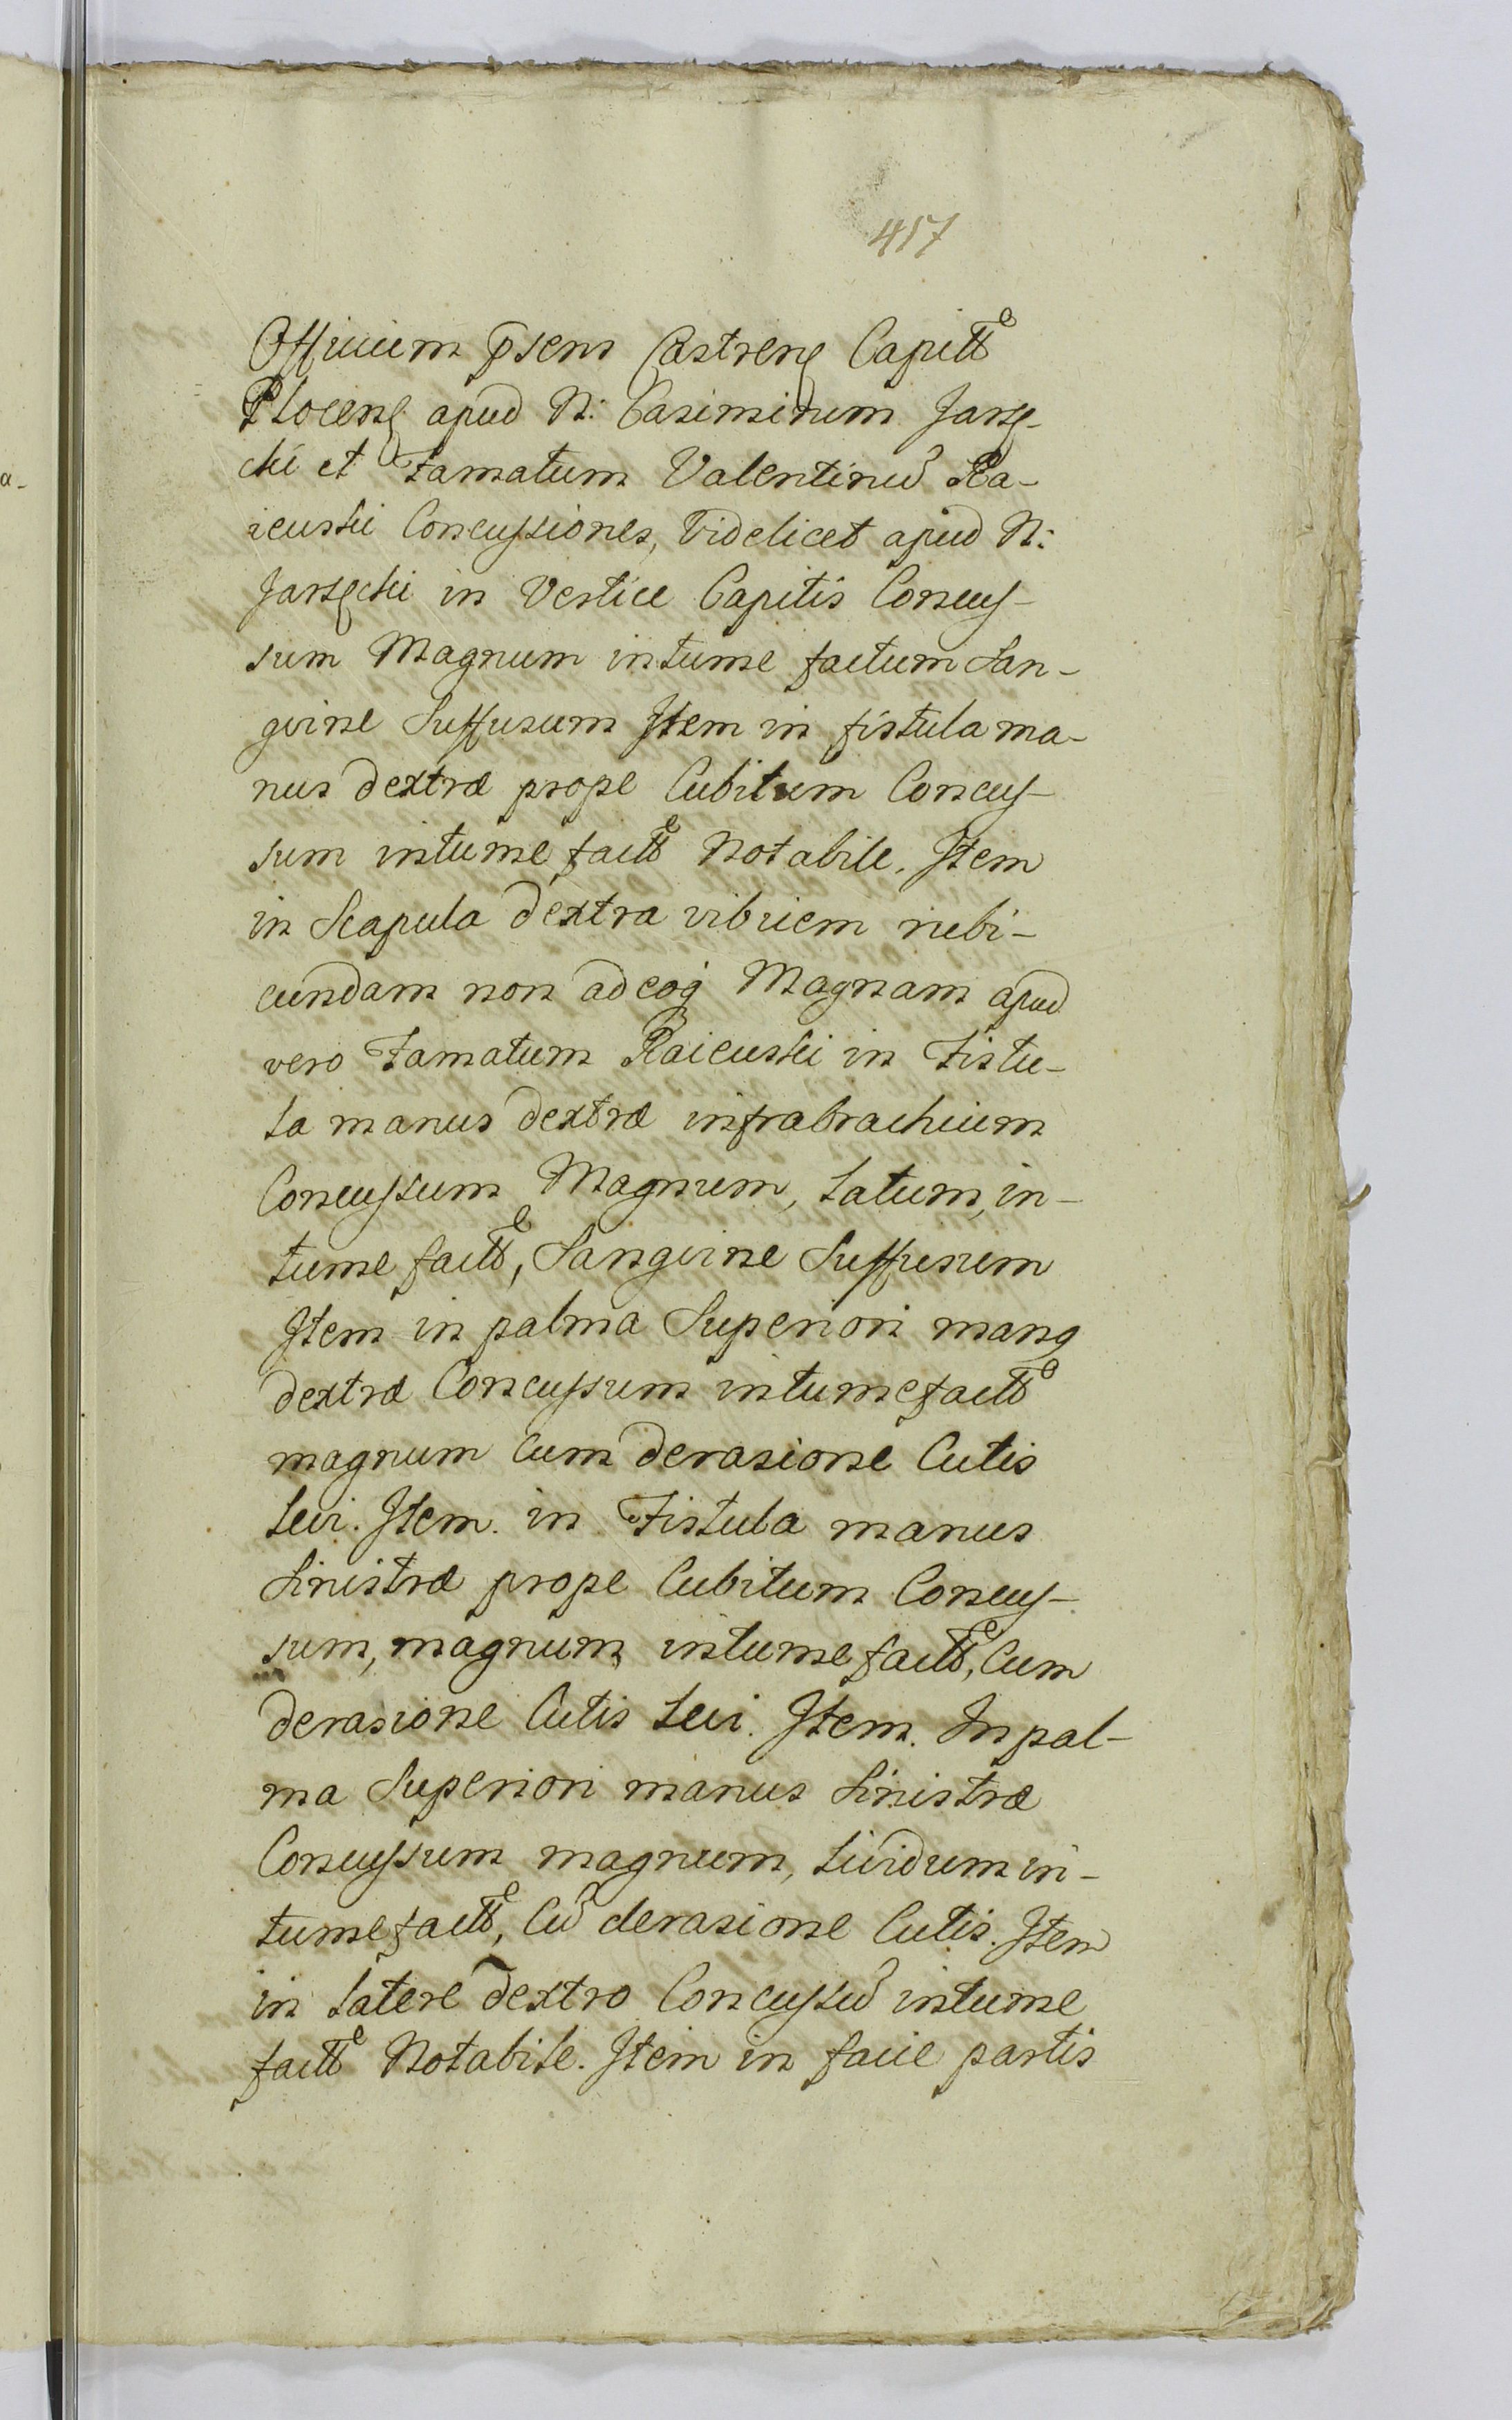 457
Officium pñsens Castrens Capitt̃
Plocens apud N: Casimirum Jarsę-
cki et Famatum Valentinũ Ra-
icuski Concussiones, Videlicet apud N:
Jarsęcki in Vertice Capitis Concus-
sum Magnum intume factum San-
gvine Suffusum Item in fistula ma-
nus dextræ prope Cubitum Concus-
sum intume factt̃ Notabile. Item
in Scapula dextra vibicem rubi-
cundam non adeoq Magnam apud
vero Famatum Raicuski in Fistu-
la manus dextræ infrabrachium
Concussum Magnum, Latum, in-
tume factt̃, Sangvine Suffusum
Item in palma Superiori manq
dextræ Concussum intumefactt̃
magnum Cum derasione Cutis
Levi. Item. in Fistula manus
Sinistræ prope Cubitum Concus-
sum, magnum, intume factt̃, Cum
derasione Cutis Levi. Item. In pal-
ma Superiori manus Sinistræ
Concussum magnum, Lividum in-
tumefactt̃, Cũ derasione Cutis. Item
in Latere dextro Concussũ intume
factt̃ Notabile. Item in facie partis
a-